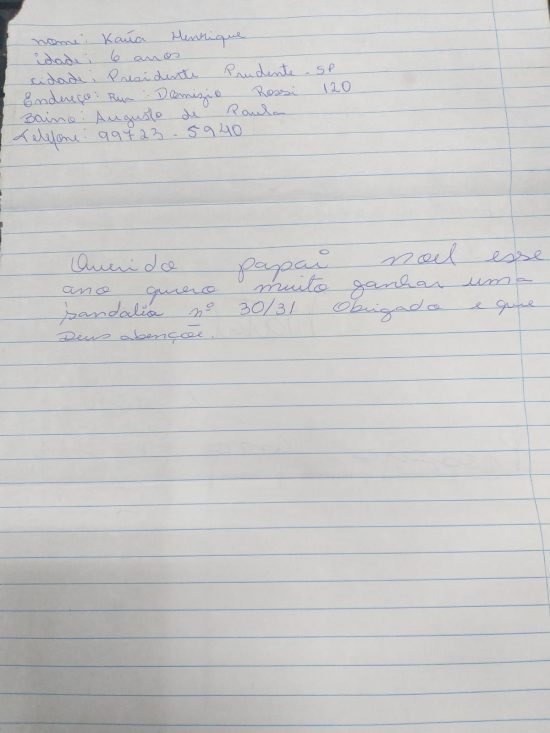 nome: Kaúa Henrique
idade: 6 anos
cidade: Presidente Prudente - SP
Endereço: Rua: Domizio Rossi 120
Bairro: Augusto de Paula
Telefone: 99723-5940
Querido papai noel esse
ano quero muito ganhar uma
sandalia nº 30/31 Obrigado e que
Deus abençõe.